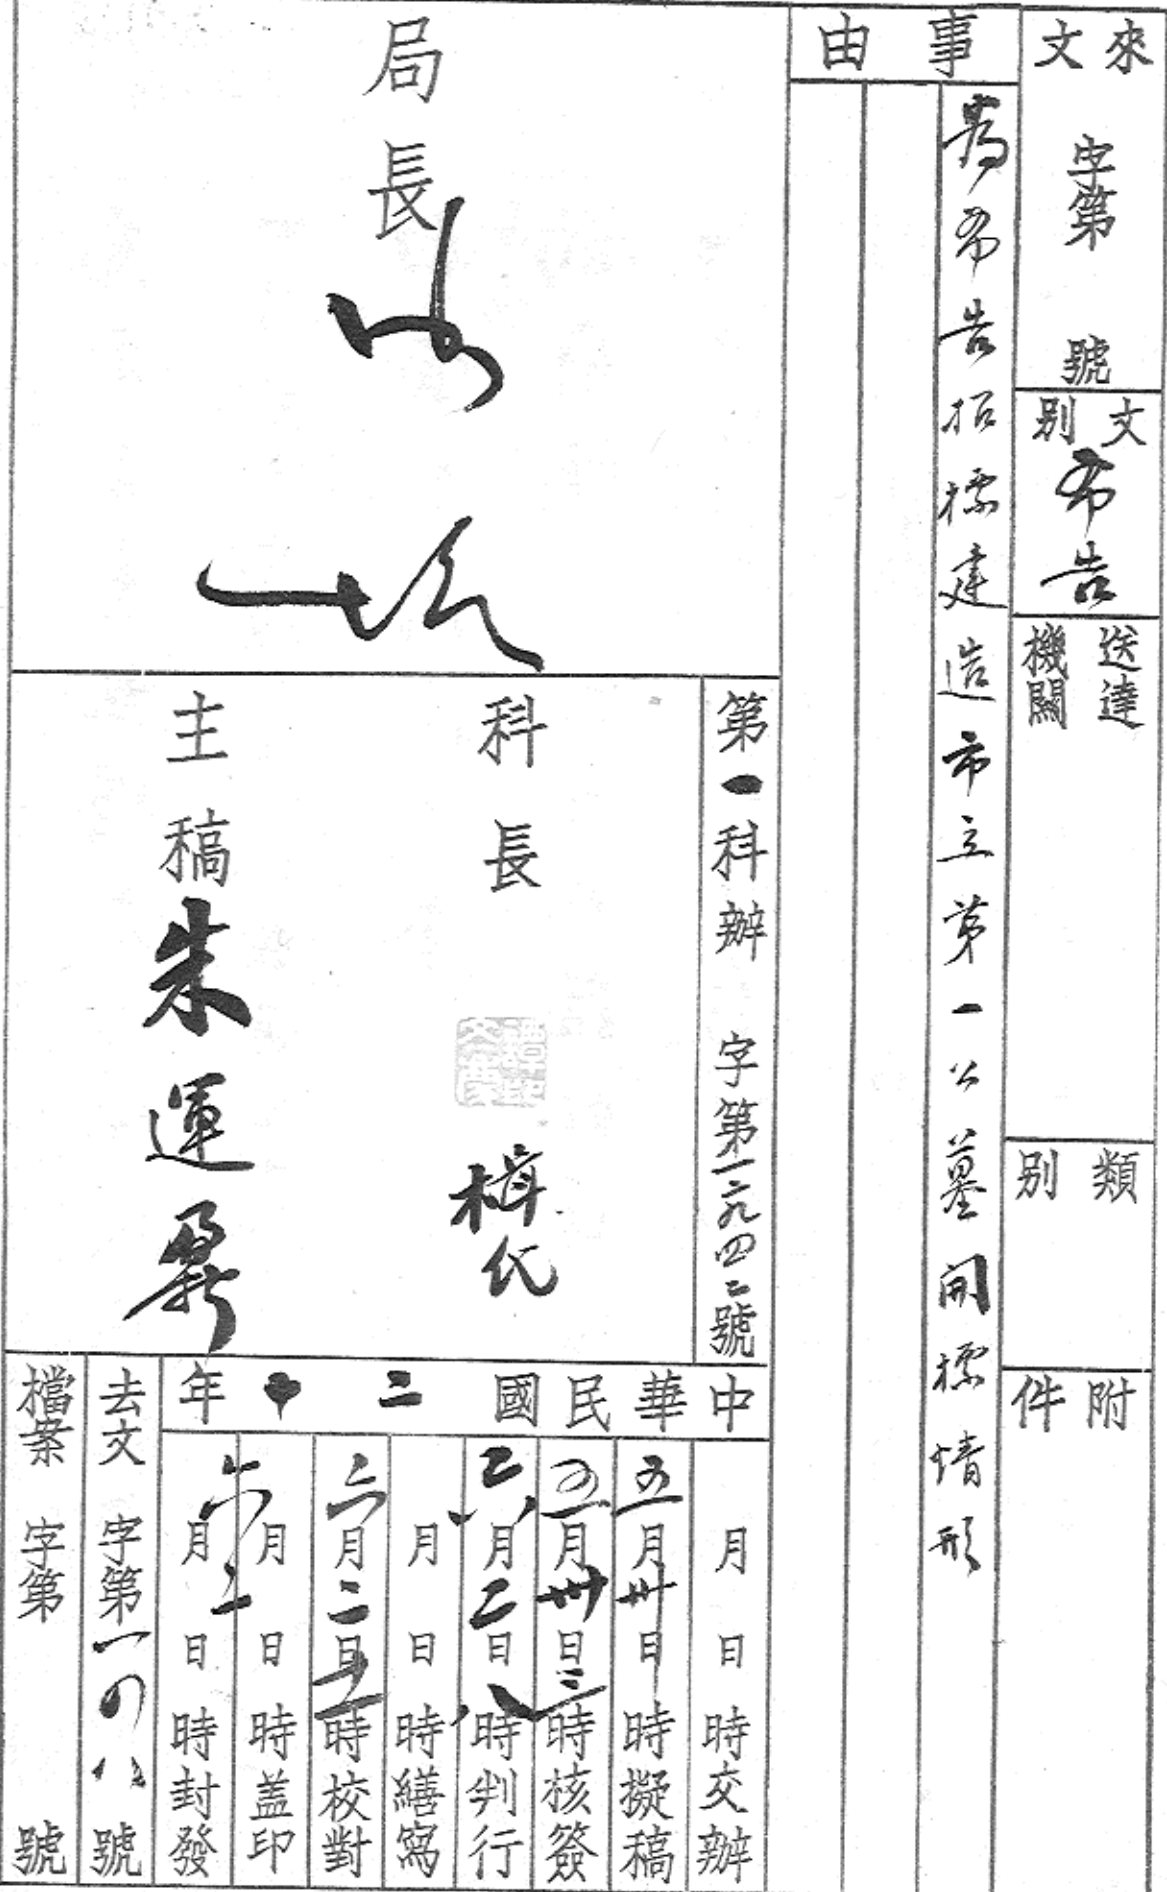 來文 字第 號
文別 布告
送達機關
類別
附件
事由
為布告招標建造市立第一公墓開標情形
局長
第一科辦 字第一六九四二號
科長
楫代
主稿 朱運
中華民國二十年
月 日 時交辦
五月卅日 時擬稿
五月卅日三時核簽
六月二日八時判行
月 日 時繕寫
六月二日五時校對
月 日 時蓋印
六月二日 時封發
去文 字第一四八號
檔案 字第 號